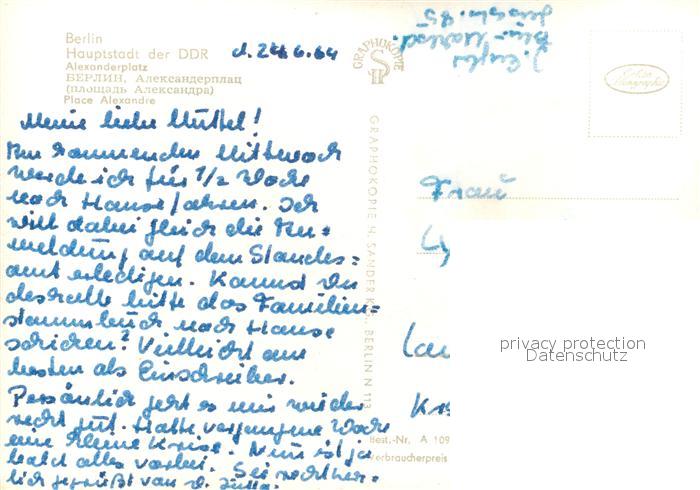 Berlin
Hauptstadt der DDR
Alexanderplatz
БЕРЛИН, Александерплац
(площадь Александра)
Place Alexandre
d. 24.6.64
Meine liebe Muttel!
Am kommenden Mittwoch
werde ich für 1/2 Woche
nach Hause fahren. Ich
will dabei gleich die An=
meldung auf dem Standes=
amt erledigen. Kannst Du
deshalb bitte das Familien=
stammbuch nach Hause
schicken? Vielleicht am
besten als Einschreiben.
Persönlich geht es mir wieder
recht gut. Hatte vergangene Woche
eine kleine Krise. Nun ist ja
bald alles vorbei. Sei recht her=
lich gegrüßt von D.
GRAPHOKOPIE
GRAPHOKOPIE H. SANDER KG., BERLIN N 113
Echte
Frau
privacy protection
Datenschutz
Best.-Nr. A 109
Verbraucherpreis